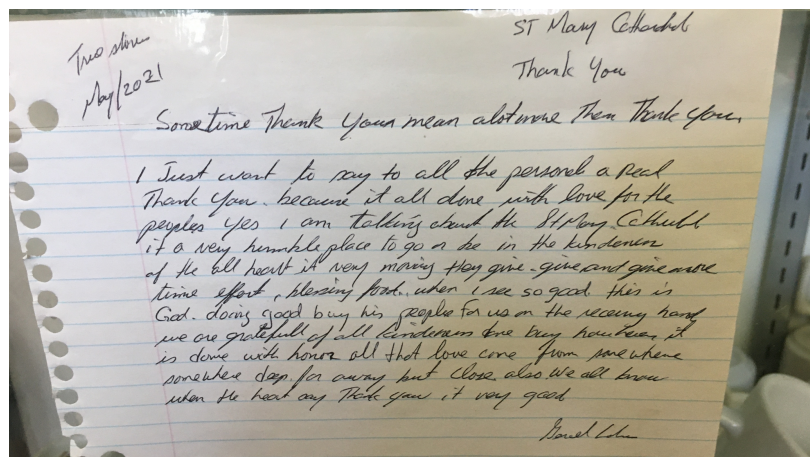 May/2021
ST Mary Cathedral
Thank You
Sometime Thank Your mean alotmore Then Thank You.
I Just want to say to all the personel a Real
Thank You. because it all done with love for the
peoples Yes I am talking about the St Mary. Cathedral
it a very humble place to go or be in the kindeness
of the all heart it very moving they give-give and give more
time effort, blessing food. when i see so good this is
God. doing good buy his people for us on the receiving hand,
we are gratefull of all kindeness done buy however it
is done with honor all that love come from somewhere
somewhere deep far away but close also. We all know
when the heart say Thank you it very good